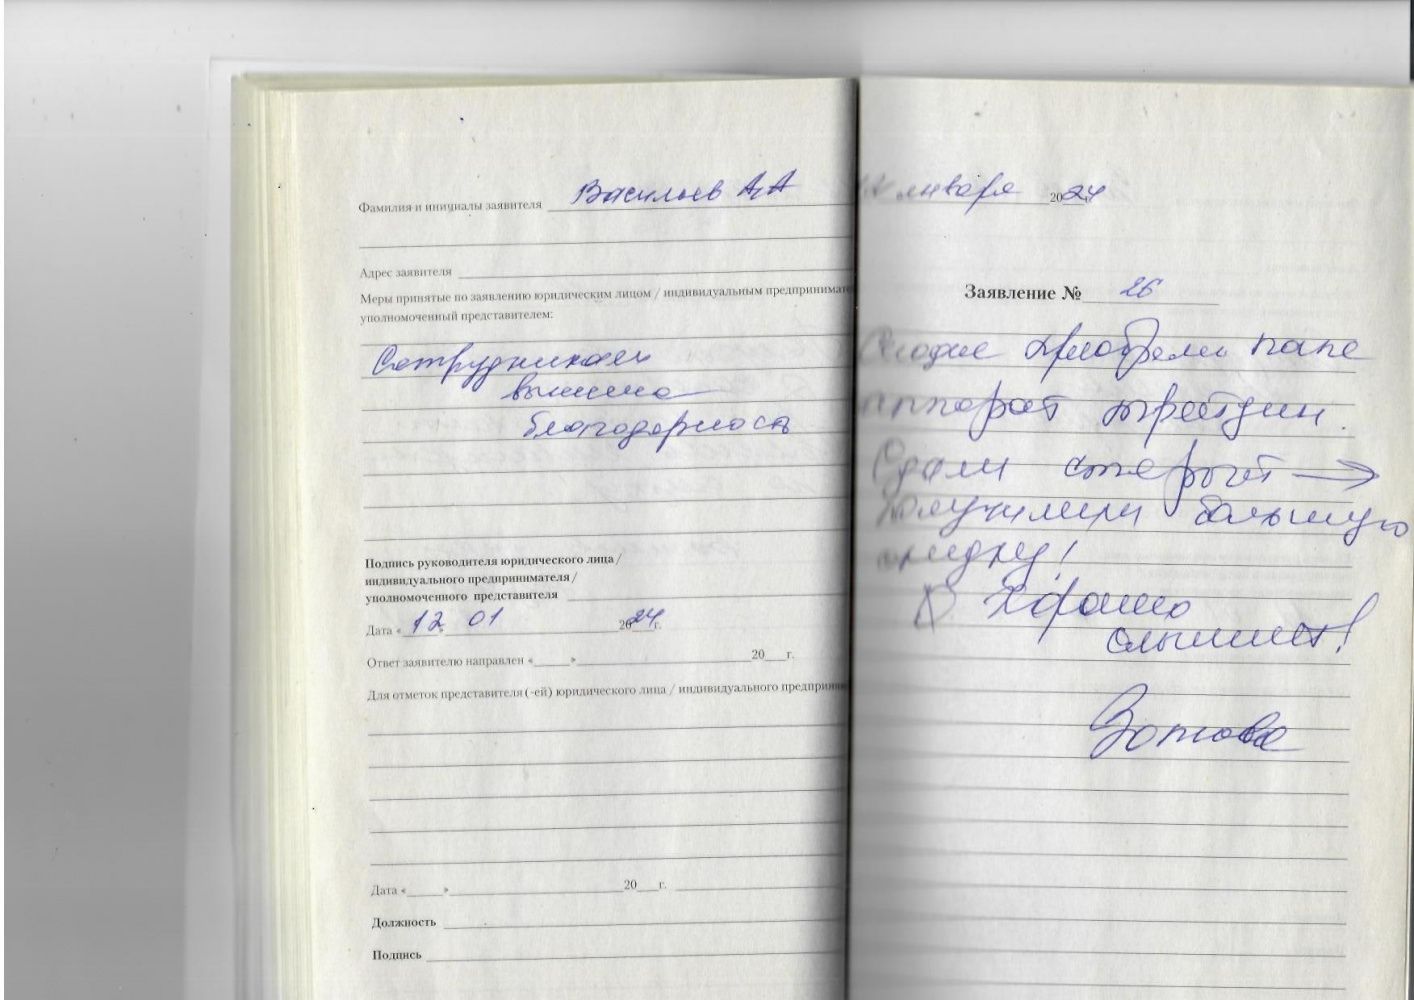 Фамилия и инициалы заявителя Васильев А,А
Адрес заявителя
Меры принятые по заявлению юридическим лицом / индивидуальным предпринимате
уполномоченный представителем:
Сотрудникам
вынесена
благодарность
Подпись руководителя юридического лица /
индивидуального предпринимателя /
уполномоченного представителя
Дата «12 01 2024г.
Ответ заявителю направлен «____»____20__г.
Для отметок представителя (-ей) юридического лица / индивидуального предприни
Дата «____»____20__г.
Должность
Подпись
января 2024
Заявление № 26
Сегодня приобрели папе
аппарат
Сдали старый →
получили большую
скидку!
Хорошо
слышит!
Зотова